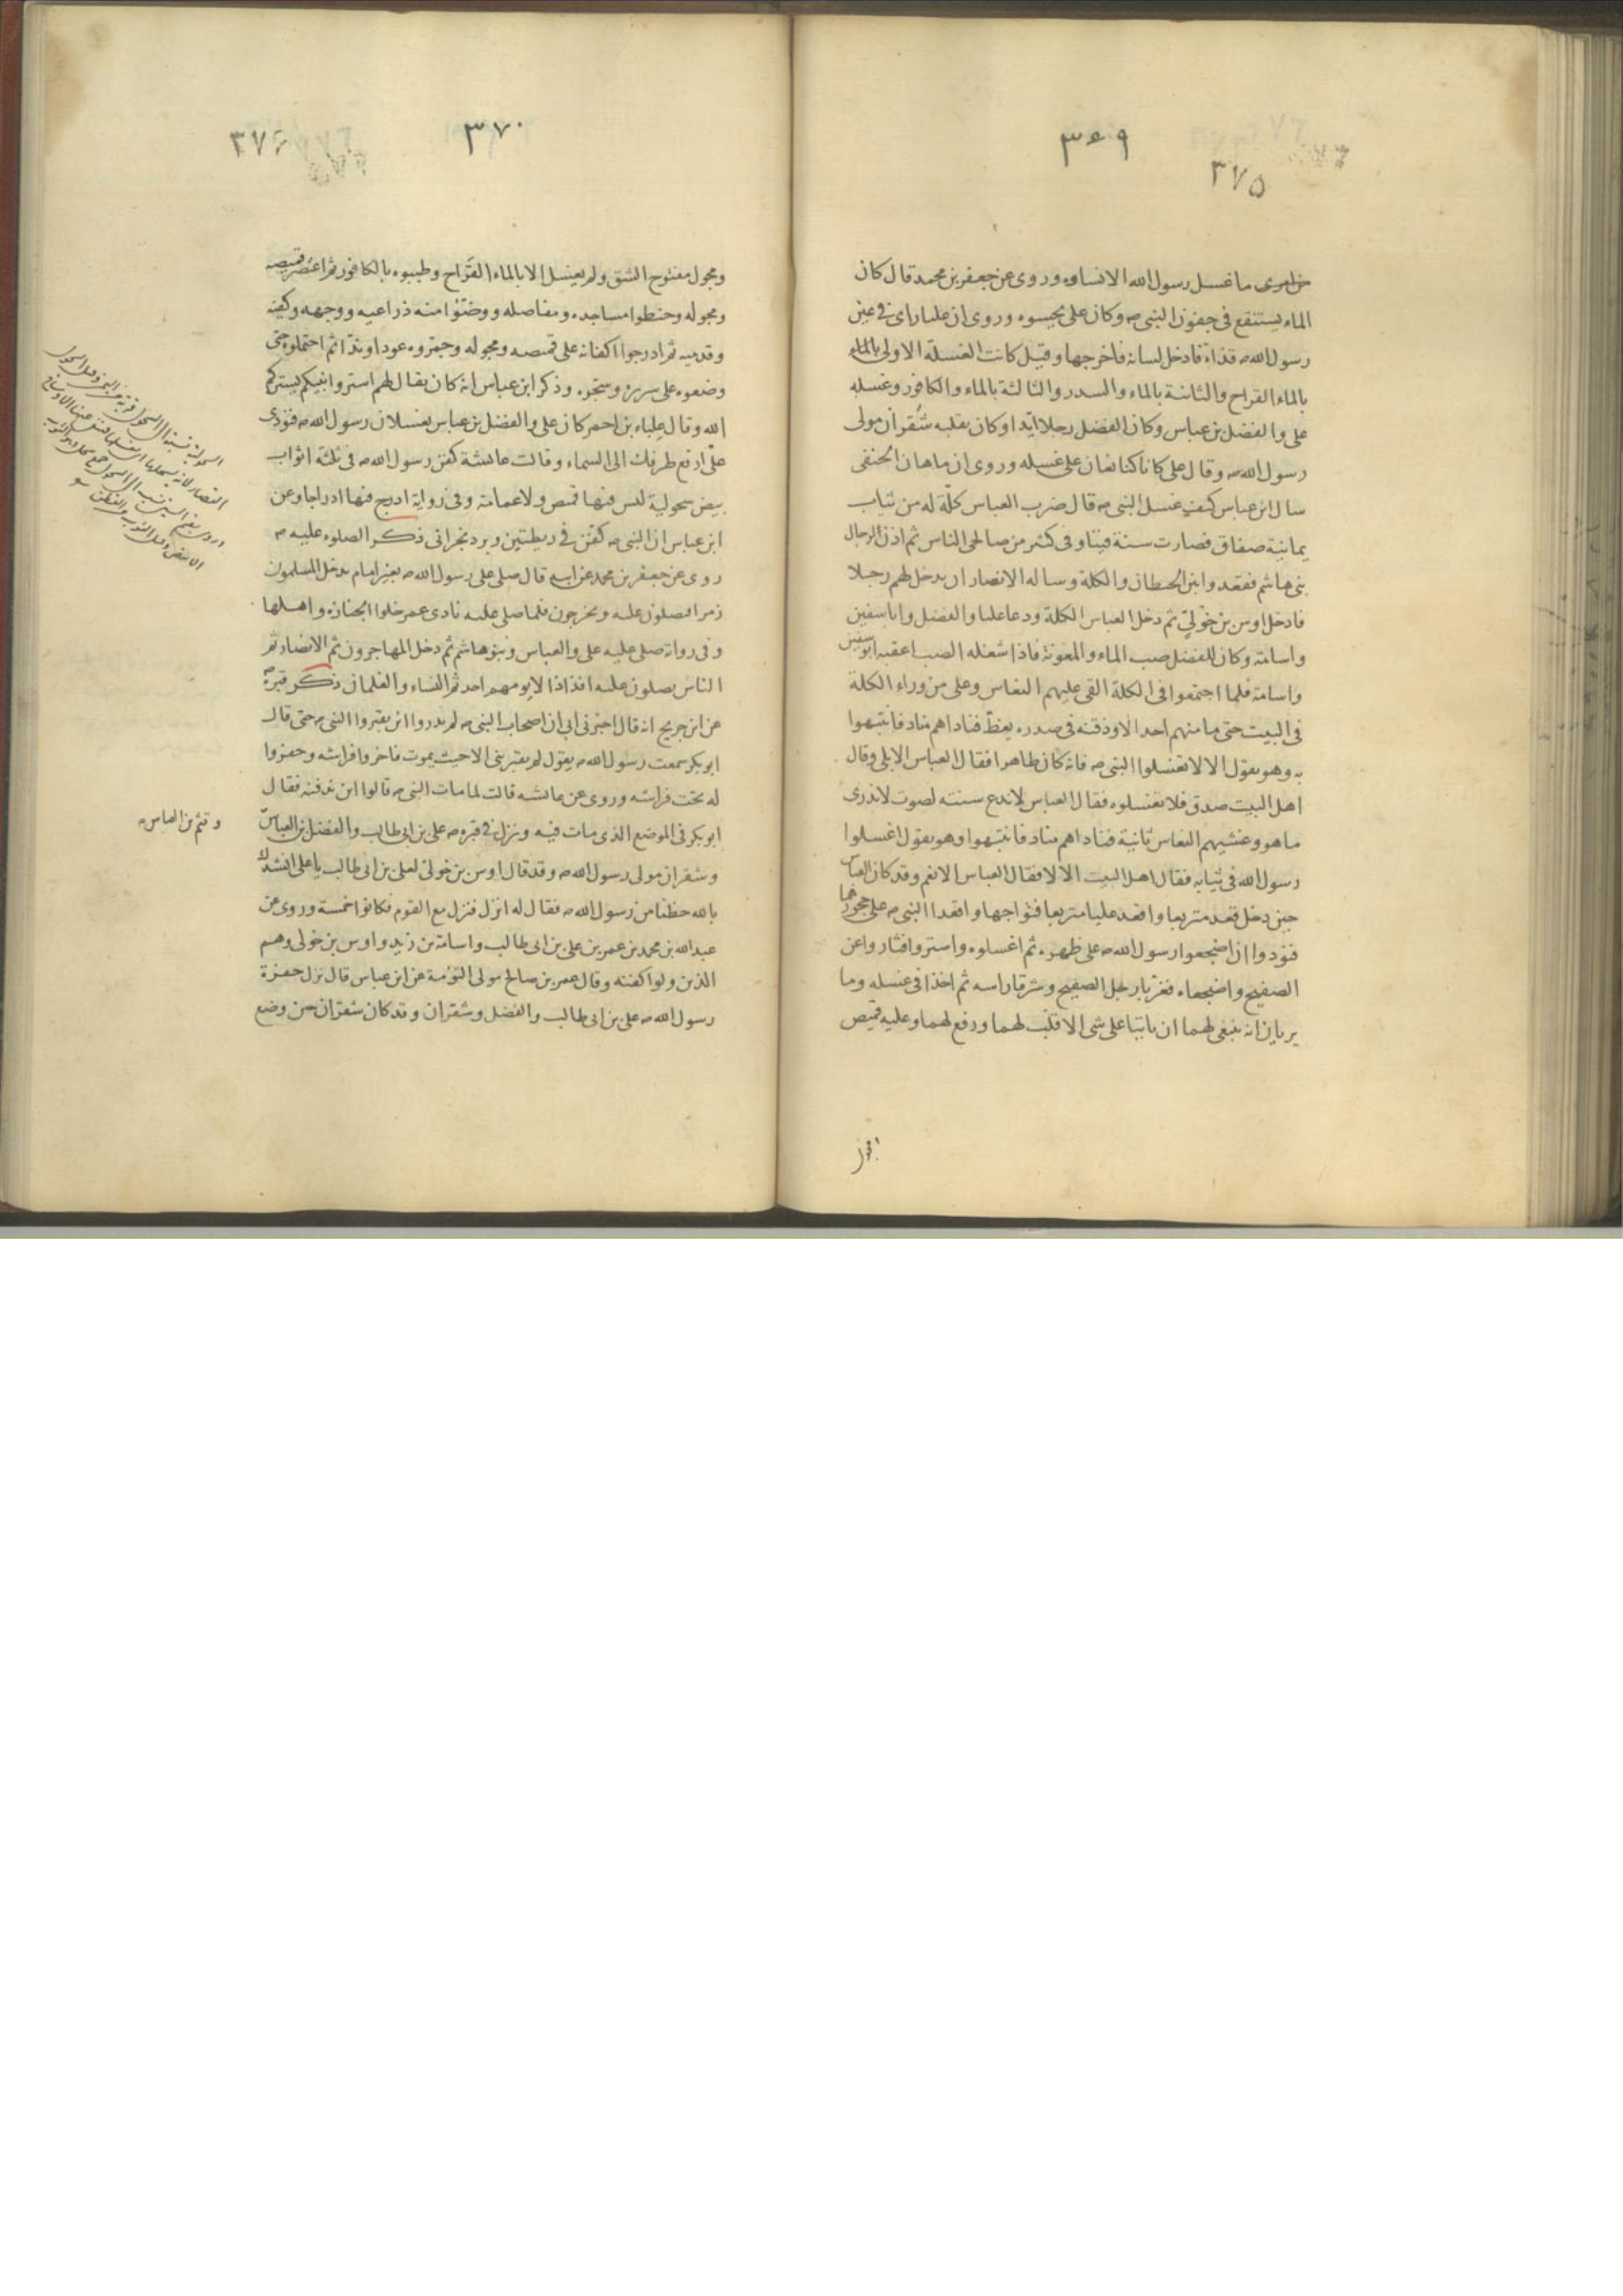 ٣٦٩
٣٧٥
ما غسل رسول الله الا نساوه وروى عن جعفر بن محمد قال كان
الماء يستنقع فى جفون النبى ص وكان على يحسوه وروى ان عليا راى فى عين
رسول الله ص قذاة فادخل لسانه فاخرجها وقيل كانت الغسلة الاولى بالماء
بالماء القراح والثانية بالماء والسدر والثالثة بالماء والكافور وغسله
على والفضل بن عباس وكان الفضل رجلا ايدا وكان يقلبه شُقران مولى
رسول الله ص وقال على كانا كنا نعان على غسله وروى ان ماهان الحنفى
سال ابن عباس كيف غسل النبى ص قال ضرب العباس كلّة له من ثياب
يمانية صفاق فصارت سنة فينا وفى كثير من صالحى الناس ثم اذن لرجال
بنى هاشم فقعدوا بين الحيطان والكلة وساله الانصار ان يدخل لهم رجلا
فادخل اوس بن خَوْلِىّ ثم دخل العباس الكلة ودعا عليا والفضل وابا سفين
واسامة وكان للفضل صب الماء والمعونة فاذا شغله الصب اعقبه ابو سفين
واسامة فلما اجتمعوا فى الكلة القى عليهم النعاس وعلى من وراء الكلة
فى البيت حتى ما منهم احد الا وذقنه فى صدره يغط فناداهم مناد فانتبهوا
به وهو يقول الا لا تغسلوا النبى ص فانه كان طاهرا فقال العباس الا بلى وقال
اهل البيت صدق فلا تغسلوه فقال العباس لا ندع سنته لصوت لا ندرى
ما هو وغشيهم النعاس ثانية فناداهم مناد فانتبهوا وهو يقول اغسلوا
رسول الله فى ثيابه فقال اهل البيت الا لا فقال العباس الا نعم وقد كان العباس
حين دخل قعد متربعا واقعد عليا متربعا فتواجها واقعدا النبى ص على حجورهما
فنودوا ان اضجعوا رسول الله ص على ظهره ثم اغسلوه واستروا فثاروا عن
الصفيح واضجعاه فغربا رجل الصفيح وشرقا راسه ثم اخذا فى غسله وما
يريان انه ينبغى لهما ان ياتيا على شى الا قلب لهما ورفع لهما وعليه قميص
٣٧٠
٣٧٦
ومجول مفتوح الشق ولم يغسل الا بالماء القَرَاح وطيبوه بالكافور ثم اعتصر قميصه
ومجوله وحنطوا مساجده ومفاصله ووضئوا منه ذراعيه ووجهه وكفيه
وقدميه ثم ادرجوا اكفانه على قميصه ومجوله وجمروه عودا وندّا ثم احتملوه حتى
وضعوه على سريره وسجّوه وذكر ابن عباس انه كان يقال لهم استروا نبيكم يستركم
الله وقال علباء بن احمر كان على والفضل بن عباس يغسلان رسول الله ص فنودى
علىّ ارفع طرفك الى السماء وقالت عائشة كفن رسول الله ص فى ثلثة اثواب
بيض سحولية ليس فيها قميص ولا عمامة وفى رواية ادرج فيها ادراجا وعن
ابن عباس ان النبى ص كفن فى ريطتين وبرد نجرانى ذكر الصلوة عليه ص
روى عن جعفر بن محمد عن ابيه قال صلى على رسول الله ص بغير امام يدخل المسلمون
زمرا فيصلون عليه ويخرجون فلما صلى عليه نادى عمر خلوا الجنازة واهلها
وفى رواية صلى عليه على والعباس وبنو هاشم ثم دخل المهاجرون ثم الانصار ثم
الناس يصلون عليه افذاذا لا يومهم احد ثم النساء والغلمان ذكر قبره ص
عن ابن جريج انه قال اخبرنى ابى ان اصحاب النبى ص لم يدروا اين يقبروا النبى ص حتى قال
ابو بكر سمعت رسول الله ص يقول لم يقبر نبى الا حيث يموت فاخروا فراشه وحفروا
له تحت فراشه وروى عن عائشة قالت لما مات النبى ص قالوا اين ندفنه فقال
ابو بكر فى الموضع الذى مات فيه ونزل فى قبره ص على بن ابى طالب والفضل بن العباس
وقثم بن العباس ص
وشقران مولى رسول الله ص وقد قال اوس بن خولى لعلى بن ابى طالب يا على انشدك
بالله حظنا من رسول الله ص فقال له انزل فنزل مع القوم فكانوا خمسة وروى عن
عبد الله بن محمد بن عمر بن على بن ابى طالب واسامة بن زيد واوس بن خولى وهم
الذين ولوا كفنه وقال عمر بن صالح مولى التؤمة عن ابن عباس قال نزل حفرة
رسول الله ص على بن ابى طالب والفضل وشقران وقد كان شقران حين وضع